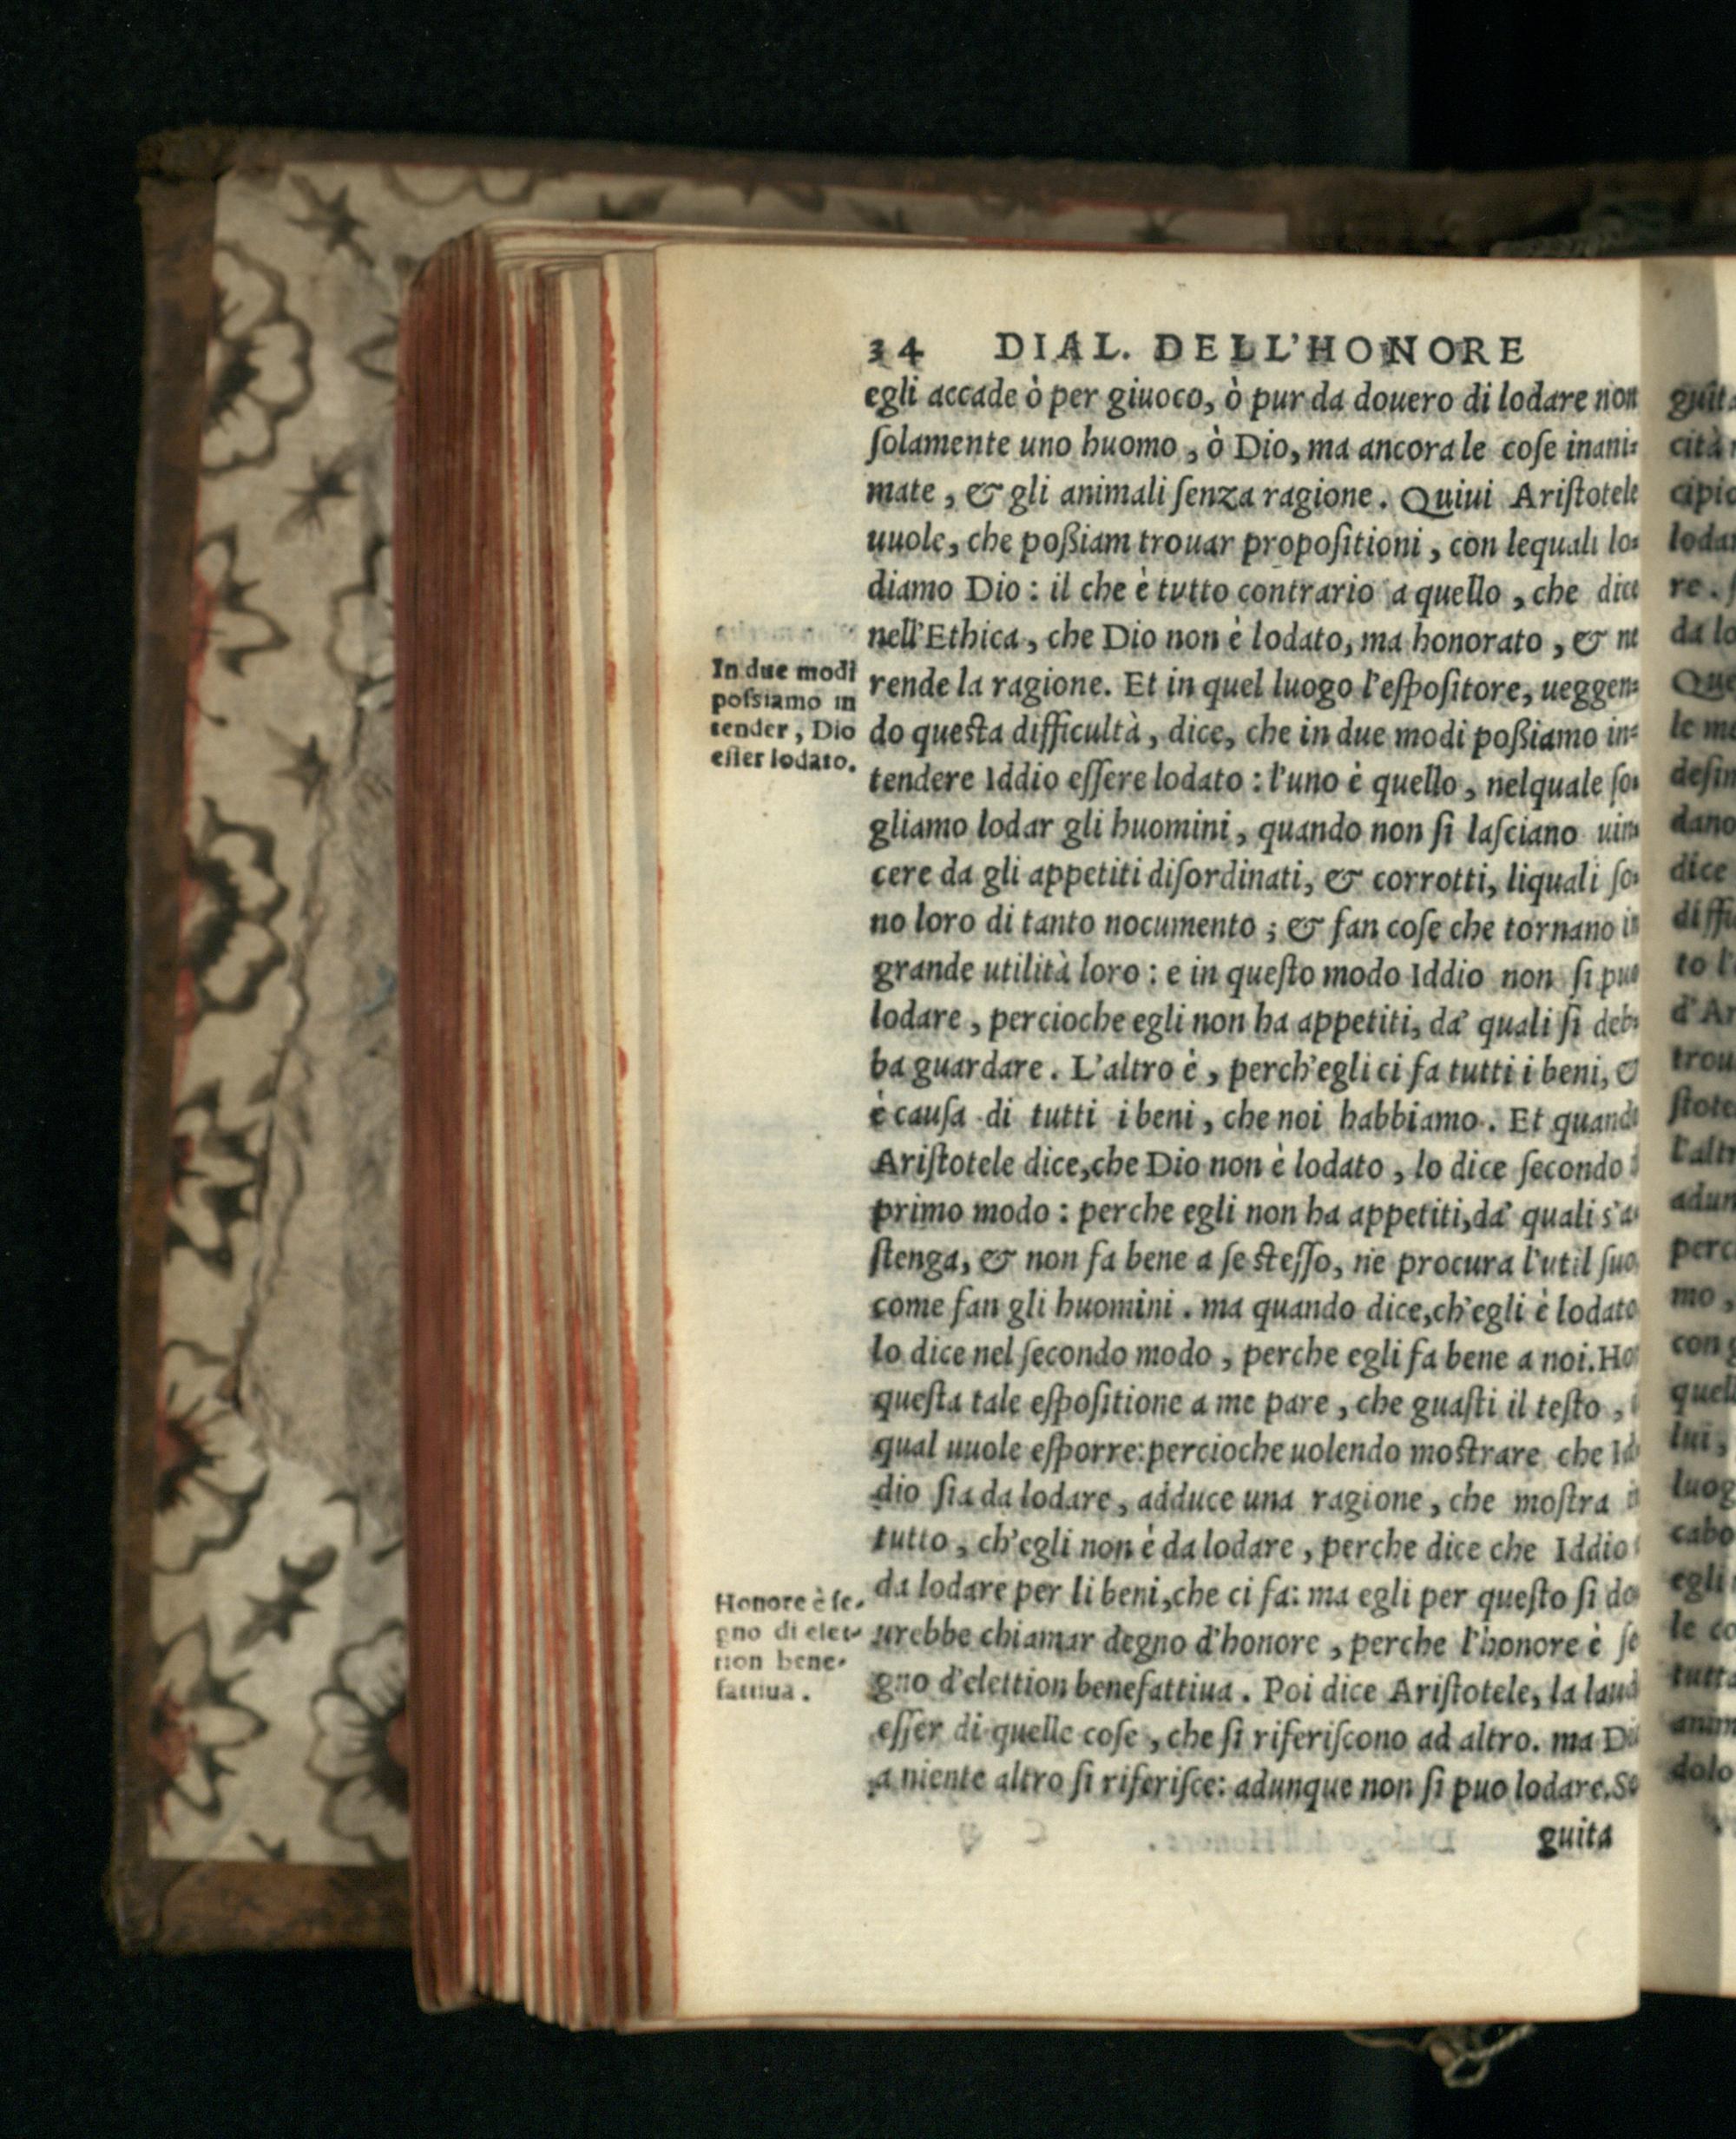 34 DIAL. DELL'HONORE
egli accade ò per giuoco, ò pur da douero di lodare non
ſolamente uno huomo, ò Dio, ma ancora le coſe inani-
mate, & gli animali ſenza ragione. Quiui Ariſtotele
uuole, che poßiam trouar propoſitioni, con lequali lo-
diamo Dio: il che è tutto contrario a quello, che dice
nell'Ethica, che Dio non è lodato, ma honorato, & ne
In due modi
poſsiamo in
tender, Dio
eſſer lodato.
rende la ragione. Et in quel luogo l'eſpoſitore, ueggen-
do queſta difficultà, dice, che in due modi poßiamo in-
tendere Iddio eſſere lodato: l'uno è quello, nelquale ſo-
gliamo lodar gli huomini, quando non ſi laſciano uin-
cere da gli appetiti diſordinati, & corrotti, liquali ſo-
no loro di tanto nocumento; & fan coſe che tornano in
grande utilità loro: e in queſto modo Iddio non ſi puo
lodare, percioche egli non ha appetiti, da' quali ſi deb-
ba guardare. L'altro è, perch'egli ci fa tutti i beni, &
è cauſa di tutti i beni, che noi habbiamo. Et quando
Ariſtotele dice, che Dio non è lodato, lo dice ſecondo
primo modo: perche egli non ha appetiti, da' quali s'a-
ſtenga, & non fa bene a ſe ſteſſo, ne procura l'util ſuo
come fan gli huomini. ma quando dice, ch'egli è lodato
lo dice nel ſecondo modo, perche egli fa bene a noi. Ho
queſta tale eſpoſitione a me pare, che guaſti il teſto,
qual uuole eſporre: percioche uolendo moſtrare che Id-
dio ſia da lodare, adduce una ragione, che moſtra in
tutto, ch'egli non è da lodare, perche dice che Iddio
da lodare per li beni, che ci fa: ma egli per queſto ſi do-
Honore è ſe-
gno di elet-
tion bene-
fattiua.
urebbe chiamar degno d'honore, perche l'honore è ſe
gno d'elettion benefattiua. Poi dice Ariſtotele, la laud
eſſer di quelle coſe, che ſi riferiſcono ad altro. ma Di
a niente altro ſi riferiſce: adunque non ſi puo lodare. Se
guita